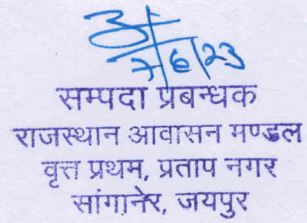 7/6/23
सम्पदा प्रबन्धक
राजस्थान आवासन मण्डल
वृत्त प्रथम, प्रताप नगर
सांगानेर, जयपुर